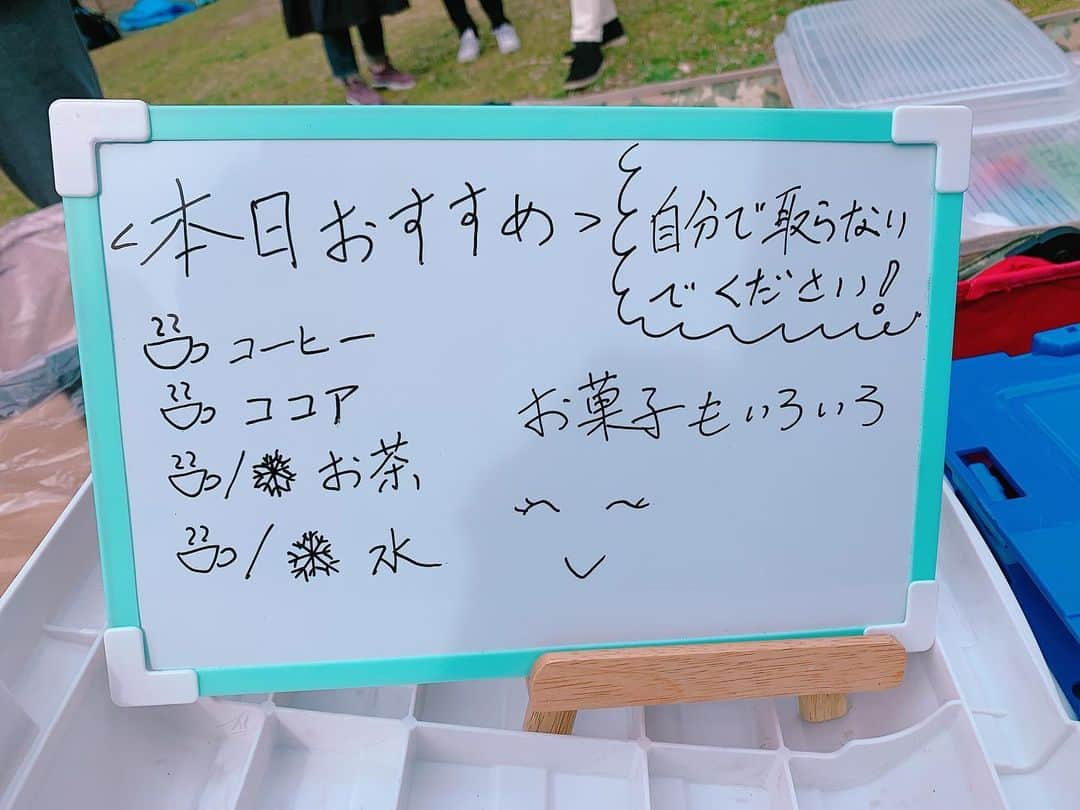 <本日おすすめ>
自分で取らない
でください!
コーヒー
ココア
/ お茶
/ 水
お菓子もいろいろ